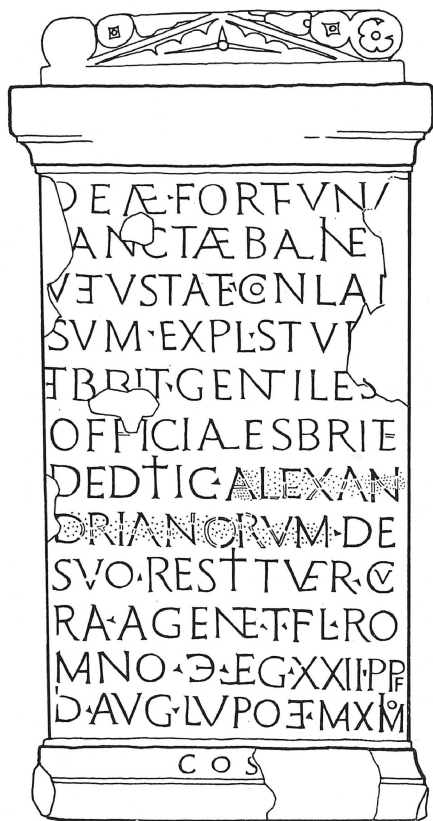 DEAE·FORTVN
ANCTAE BALNE
VETVSTATE CONLAP
SVM·EXPL·STV
ET BRIT·GENTILES
OFFICIALES BRIT ET
DEDITIC·ALEXAN
DRIANORVM·DE
SVO·RESTITVER·CV
RA·AGENTE·T·FL·RO
MANO·Ↄ·LEG·XXII·P·P·F
ID·AVG·LVPO ET·MAXIMO
COS